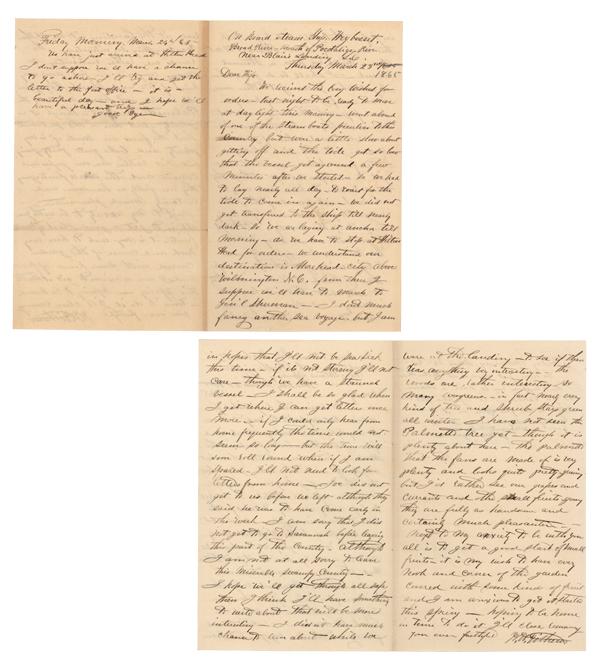 Friday Morning, March 24th 65
We have just arrived at Hilton Head
I don't suppose we'll have a chance
to go ashore - I'll try and get this
letter to the post office - it is a
beautiful day - and I hope we'll
have a pleasant trip -
Good Bye -
On Board Steam Ship, Weybosset,
Broad River - mouth of Pocotaligo River
Near Blair's Landing S.C.
Thursday March 23rd
1865
Dear
We received the long wished for
orders - last night to be ready to move
at daylight this morning - went aboard
of one of the steam boats peculiar to this
Country but were a little slow about
getting off and the tide got so low
that the vessel got aground a few
minutes after we started - so we had
to lay nearly all day - to wait for the
tide to come in again - we did not
get transfered to the ship till nearly
dark - so we are laying at anchor till
morning - as we have to stop at Hilton
Head for orders - we understand our
destination is Morehead - City above
Wilmington N.C. from there I
suppose we'll have to march to
Gen'l Sherman - I did much
fancy another sea voyage but I am
in hopes that I'll not be seasick
this time - if its not stormy I'll not
care - though we have a staunch
vessel - I shall be so glad when
I get where I can get letters once
more - if I could only hear from
home frequently the time would not
seem so long - but the time will
soon roll round when if I am
spared - I'll not need to look for
letters from home - Joe did not
get to us before we left although they
said he was to have come early in
the week - I am sorry that I did
not get to go to Savannah before leaving
this part of the Country - although
I am not at all sorry to leave
this miserable swampy Country -
I hope we'll get through all safe
then I think I'll have something
to write about that will be more
interesting - I didn't have much
chance to run about - while we
were at the landing - to see if there
was anything by interesting - the
woods are rather interesting - so
many evergreens - in fact nearly every
kind of tree and shrub stays green
all winter I have not seen the
Palmetto tree yet - though it is
plenty about here - the palmetto
that the fans are made of is very
plenty and looks quite pretty growing
but I'd rather see our grapes and
currants and the small fruits growing
they are fully as handsome and
certainly much pleasanter -
Next to my anxiety to be with you
all is to get a good start of small
fruits - it is my wish to have every
nook and corner of the garden
covered with some kind of fruit
and I am anxious to get it started
this spring - hoping to be home
in time to do it I'll close
your ever faithful